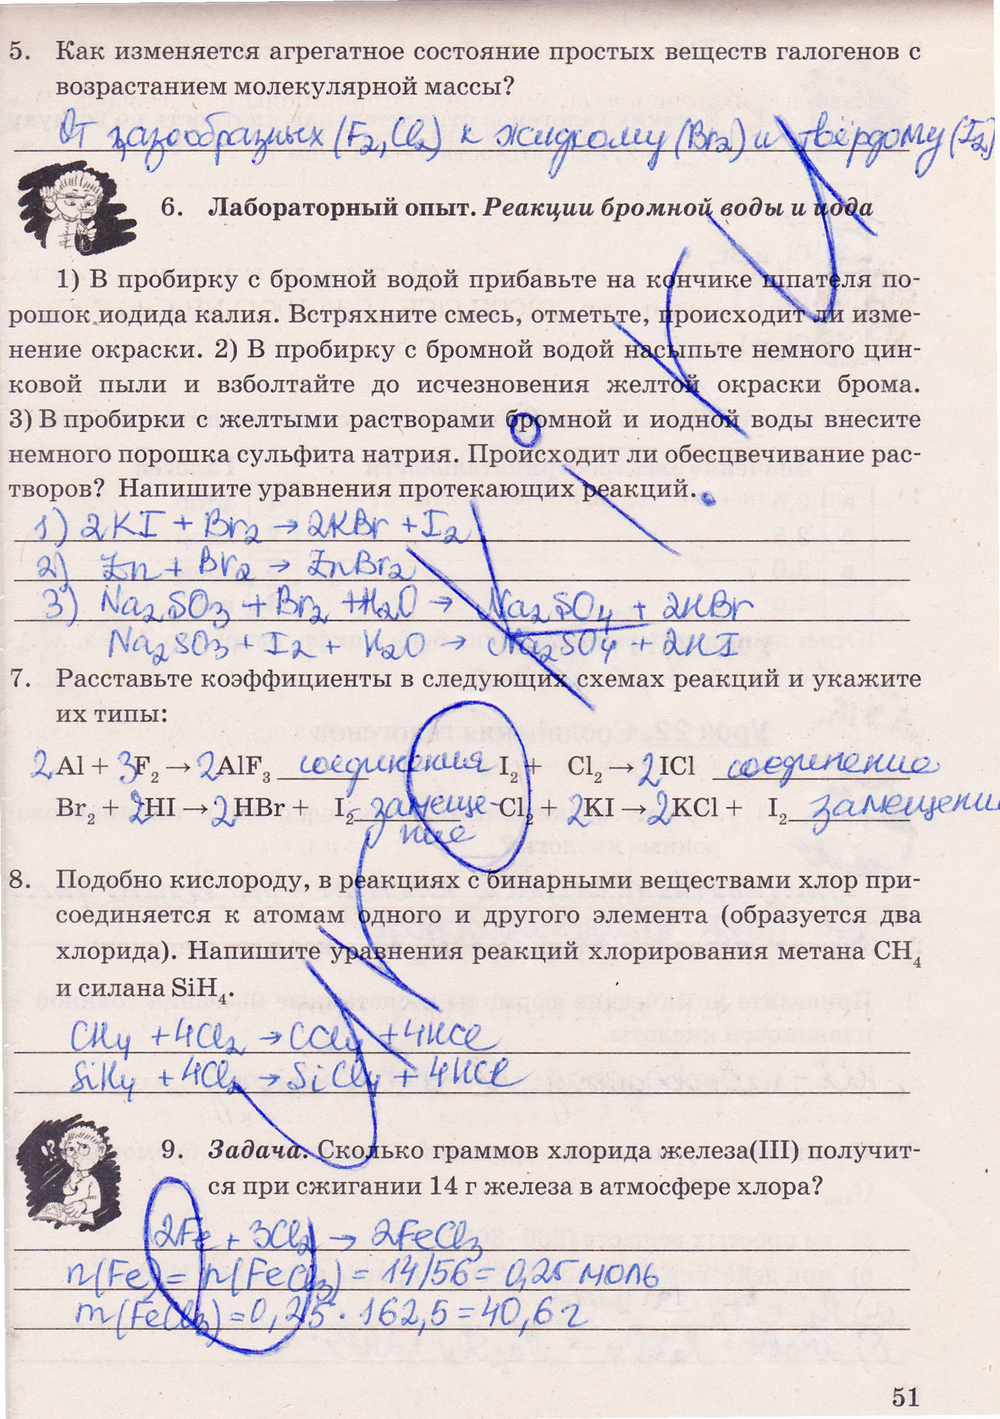 5. Как изменяется агрегатное состояние простых веществ галогенов с
возрастанием молекулярной массы?
От газообразных (F₂, Cl₂) к жидкому (Br₂) и твёрдому (I₂)
6. Лабораторный опыт. Реакции бромной воды и иода
1) В пробирку с бромной водой прибавьте на кончике шпателя по-
рошок иодида калия. Встряхните смесь, отметьте, происходит ли изме-
нение окраски. 2) В пробирку с бромной водой насыпьте немного цин-
ковой пыли и взболтайте до исчезновения желтой окраски брома.
3) В пробирки с желтыми растворами бромной и иодной воды внесите
немного порошка сульфита натрия. Происходит ли обесцвечивание рас-
творов? Напишите уравнения протекающих реакций.
1) 2KI + Br₂ → 2KBr + I₂
2) Zn + Br₂ → ZnBr₂
3) Na₂SO₃ + Br₂ + H₂O → Na₂SO₄ + 2HBr
Na₂SO₃ + I₂ + H₂O → Na₂SO₄ + 2HI
7. Расставьте коэффициенты в следующих схемах реакций и укажите
их типы:
2Al + 3F₂ → 2AlF₃ соединения I₂ + Cl₂ → 2ICl соединение
Br₂ + 2HI → 2HBr + I₂ замеще- Cl₂ + 2KI → 2KCl + I₂ замещение
ние
8. Подобно кислороду, в реакциях с бинарными веществами хлор при-
соединяется к атомам одного и другого элемента (образуется два
хлорида). Напишите уравнения реакций хлорирования метана CH₄
и силана SiH₄.
CH₄ + 4Cl₂ → CCl₄ + 4HCl
SiH₄ + 4Cl₂ → SiCl₄ + 4HCl
9. Задача. Сколько граммов хлорида железа(III) получит-
ся при сжигании 14 г железа в атмосфере хлора?
2Fe + 3Cl₂ → 2FeCl₃
n(Fe) = n(FeCl₃) = 14/56 = 0,25 моль
m(FeCl₃) = 0,25 · 162,5 = 40,6 г
51